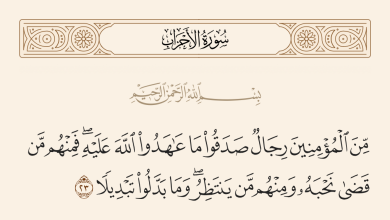 سُورَةُ الْأَحْزَابِ
بِسْمِ اللَّهِ الرَّحْمَٰنِ الرَّحِيمِ
مِّنَ ٱلْمُؤْمِنِينَ رِجَالٌ صَدَقُوا۟ مَا عَٰهَدُوا۟ ٱللَّهَ عَلَيْهِ ۖ فَمِنْهُم مَّن
قَضَىٰ نَحْبَهُۥ وَمِنْهُم مَّن يَنتَظِرُ ۖ وَمَا بَدَّلُوا۟ تَبْدِيلًا ٢٣